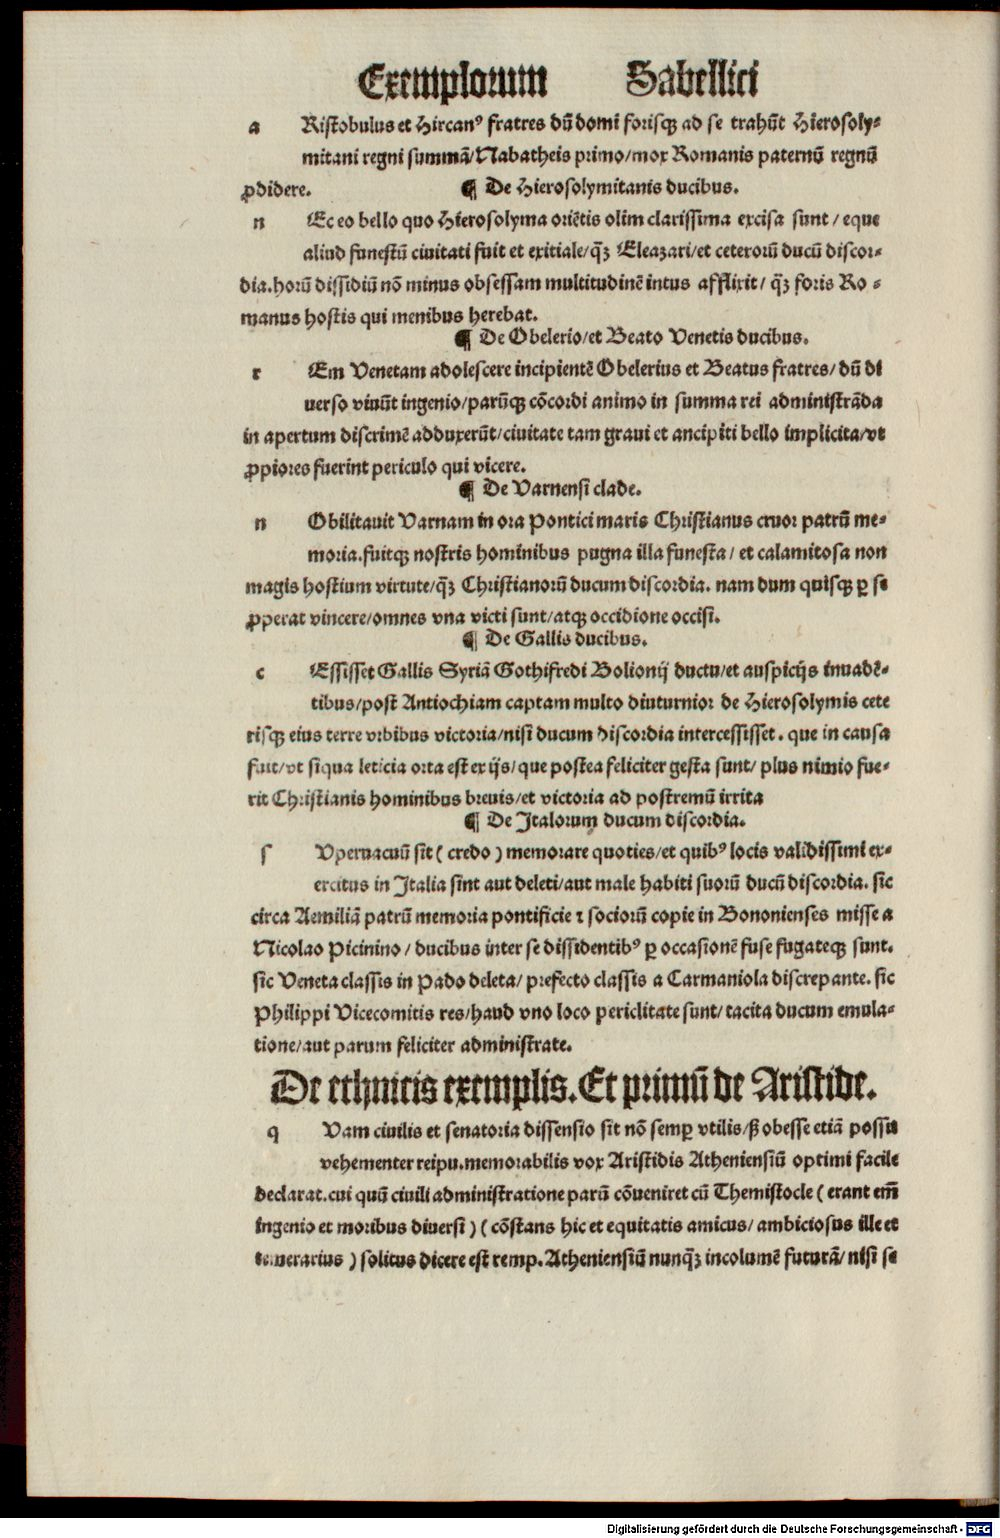 Exemplorum Sabellici
a Ristobulus et Hircanꝰ fratres dū domi forisqꝫ ad se trahūt Hierosoly-
mitani regni summā/Nabatheis primo/mox Romanis paternū regnū
ꝓdidere. ¶ De Hierosolymitanis ducibus.
n Ec eo bello quo Hierosolyma oriētis olim clarissima excisa sunt/eque
aliud funestū ciuitati fuit et exitiale/qꝫ̄ Eleazari/et ceterorū ducū discor-
dia.horū dissidiū nō minus obsessam multitudinē intus afflixit/qꝫ̄ foris Ro-
manus hostis qui menibus herebat.
¶ De Obelerio/et Beato Venetis ducibus.
r Em Venetam adolescere incipientē Obelerius et Beatus fratres/dū di
uerso viuūt ingenio/parūqꝫ cōcordi animo in summa rei administrāda
in apertum discrimē adduxerūt/ciuitate tam graui et ancipiti bello implicita/vt
ꝓpiores fuerint periculo qui vicere.
¶ De Varnensi clade.
n Obilitauit Varnam in ora Pontici maris Christianus cruor patrū me-
moria.fuitqꝫ nostris hominibus pugna illa funesta/et calamitosa non
magis hostium virtute/qꝫ̄ Christianorū ducum discordia. nam dum quisqꝫ ꝑ se
ꝓperat vincere/omnes vna victi sunt/atqꝫ occidione occisi.
¶ De Gallis ducibus.
c Essisset Gallis Syriā Gothifredi Bolionij ductu/et auspicijs inuadē-
tibus/post Antiochiam captam multo diuturnior de Hierosolymis cete
risqꝫ eius terre vrbibus victoria/nisi ducum discordia intercessisset. que in causa
fuit/vt siqua leticia orta est ex ijs/que postea feliciter gesta sunt/plus nimio fue-
rit Christianis hominibus breuis/et victoria ad postremū irrita
¶ De Italorum ducum discordia.
s Vperuacuū sit (credo) memorare quoties/et quibꝰ locis validissimi ex-
ercitus in Italia sint aut deleti/aut male habiti suorū ducū discordia. sic
circa Aemiliā patrū memoria pontificie ⁊ sociorū copie in Bononienses misse a
Nicolao Picinino/ducibus inter se dissidentibꝰ ꝑ occasionē fuse fugateqꝫ sunt.
sic Veneta classis in Pado deleta/prefecto classis a Carmaniola discrepante. sic
Philippi Vicecomitis res/haud vno loco periclitate sunt/tacita ducum emula-
tione/aut parum feliciter administrate.
De ethnicis exemplis. Et primū de Aristide.
q Vam ciuilis et senatoria dissensio sit nō semꝑ vtilis/ß obesse etiā possit
vehementer reipu.memorabilis vox Aristidis Atheniensiū optimi facile
declarat.cui quū ciuili administratione parū cōueniret cū Themistocle (erant em̄
ingenio et moribus diuersi) (cōstans hic et equitatis amicus/ambiciosus ille et
temerarius) solitus dicere est remp. Atheniensiū nunqꝫ̄ incolumē futurā/nisi se
Digitalisierung gefördert durch die Deutsche Forschungsgemeinschaft - DFG